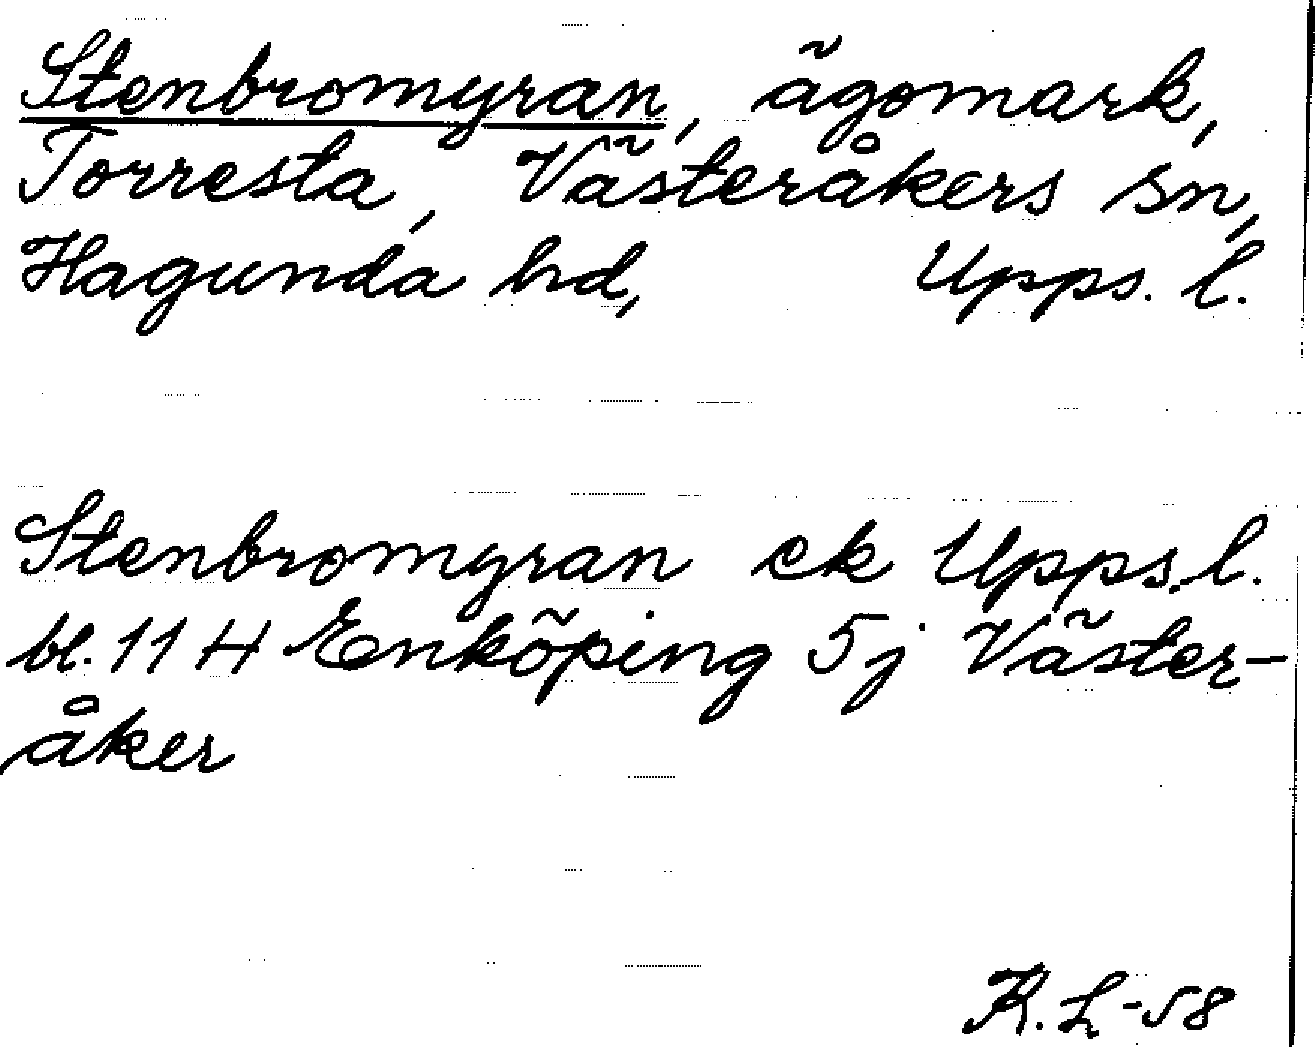 Stenbromyran, ägomark,
Torresta, Västeråkers sn,
Hagunda hd, Upps. l.
Stenbromyran ek Upps. l.
bl. 11 H Enköping 5j Väster-
åker
K. L-58